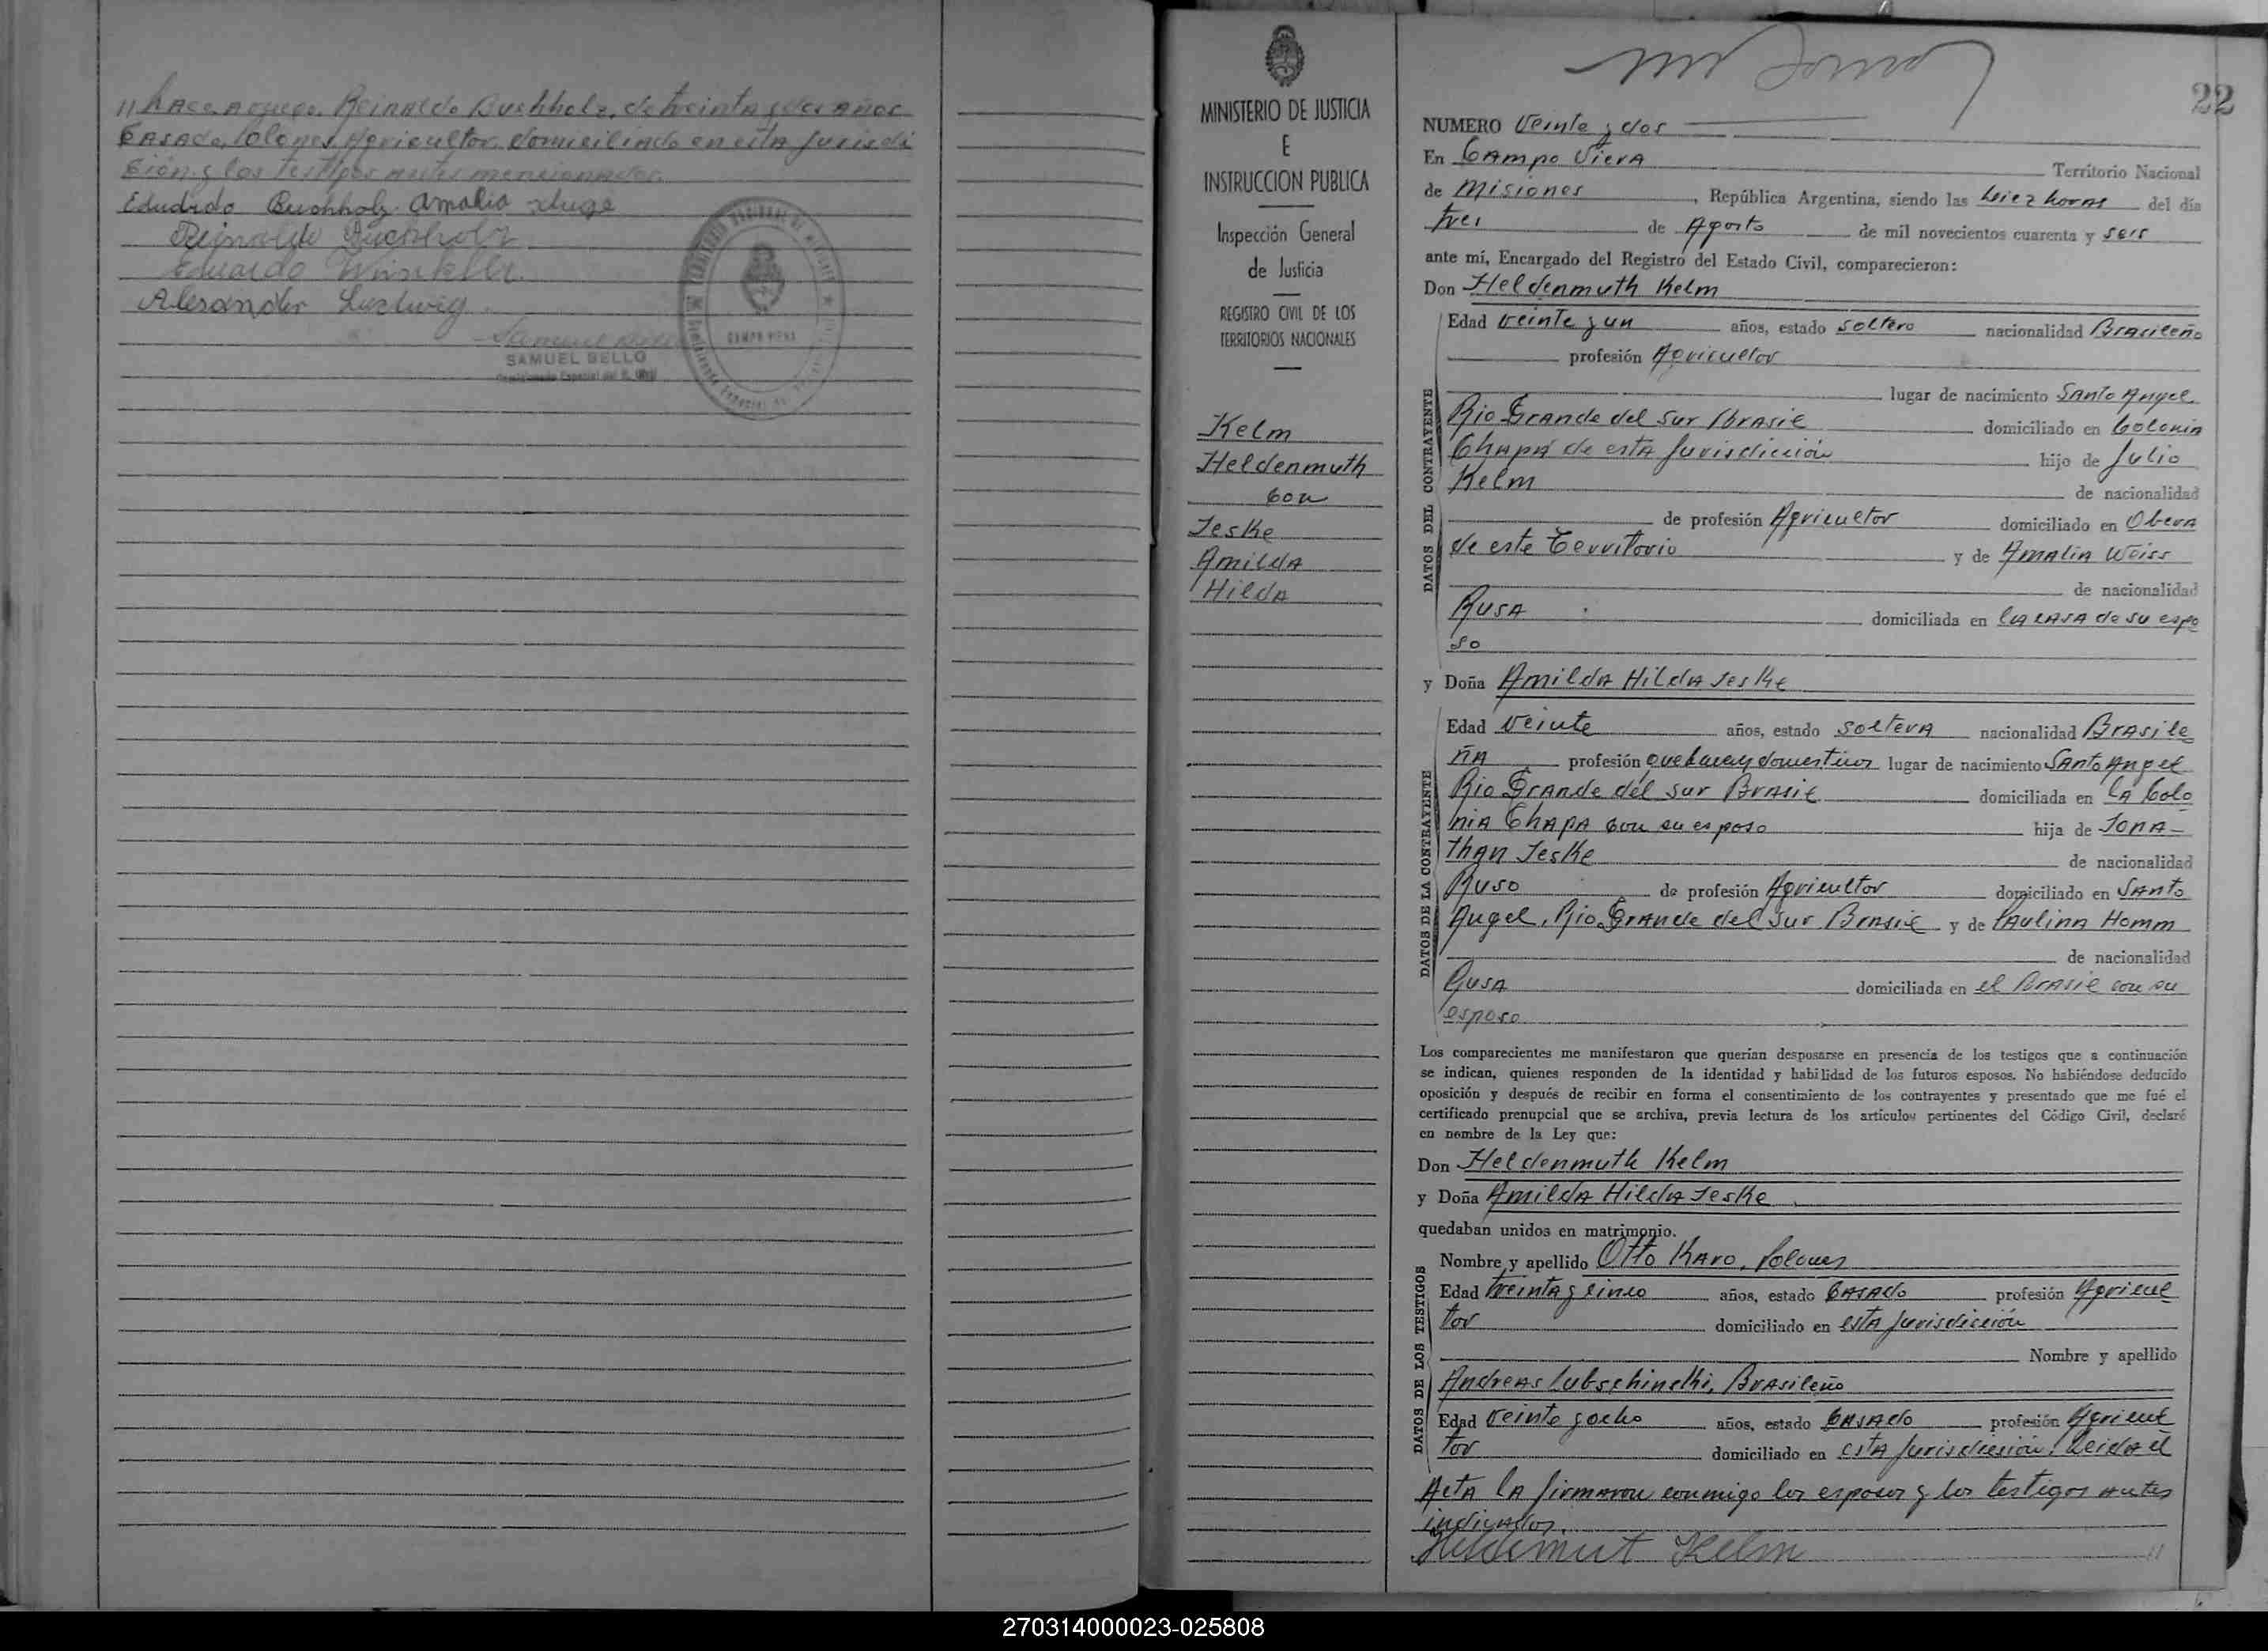 // hace a ruego, Reinaldo Buchholz, de treinta y dos años
casado, Polones, Agricultor domiciliado en esta Jurisdi
ción y los testigos antes mencionados.
Eduardo Buchholz Amalia
Reinaldo Buchholz
Eduardo
Alexander Ludwig
SAMUEL BELLO
CAMPO VIERA
MINISTERIO DE JUSTICIA
E
INSTRUCCION PUBLICA
Inspección General
de Justicia
REGISTRO CIVIL DE LOS
TERRITORIOS NACIONALES
Kelm
Heldenmuth
con
Jeske
Amilda
Hilda
22
NUMERO Veinte y dos
En Campo Viera Territorio Nacional
de Misiones, República Argentina, siendo las diez horas del día
tres de Agosto de mil novecientos cuarenta y seis
ante mí, Encargado del Registro del Estado Civil, comparecieron:
Don Heldenmuth Kelm
DATOS DEL CONTRAYENTE
Edad veinte y un años, estado soltero nacionalidad Brasileño
profesión Agricultor
lugar de nacimiento Santo Angel
Rio Grande del Sur Brasil domiciliado en Colonia
Chapá de esta Jurisdicción hijo de Julio
Kelm de nacionalidad
de profesión Agricultor domiciliado en Obera
de este Territorio y de Amalia Weiss
de nacionalidad
Rusa domiciliada en la casa de su espo
so
y Doña Amilda Hilda Jeske
DATOS DE LA CONTRAYENTE
Edad Veinte años, estado soltera nacionalidad Brasile
ña profesión quehaceres domesticos lugar de nacimiento Santo Angel
Rio Grande del Sur Brasil domiciliada en la Colo
nia Chapa con su esposo hija de Jona-
than Jeske de nacionalidad
Ruso de profesión Agricultor domiciliado en Santo
Angel, Rio Grande del Sur Brasil y de Paulina Homm
de nacionalidad
Rusa domiciliada en el Brasil con su
esposo
Los comparecientes me manifestaron que querían desposarse en presencia de los testigos que a continuación
se indican, quienes responden de la identidad y habilidad de los futuros esposos. No habiéndose deducido
oposición y después de recibir en forma el consentimiento de los contrayentes y presentado que me fué el
certificado prenupcial que se archiva, previa lectura de los artículos pertinentes del Código Civil, declaré
en nombre de la Ley que:
Don Heldenmuth Kelm
y Doña Amilda Hilda Jeske
quedaban unidos en matrimonio.
DATOS DE LOS TESTIGOS
Nombre y apellido Otto Karo, Polones
Edad treinta y cinco años, estado casado profesión Agricul
tor domiciliado en esta Jurisdicción
Nombre y apellido
Andreas Lubschinski, Brasileño
Edad veinte y ocho años, estado casado profesión Agricul
tor domiciliado en esta Jurisdicción. Leida el
Acta la firmaron conmigo los esposos y los testigos antes
indicados.
Heldemut Kelm //
270314000023-025808